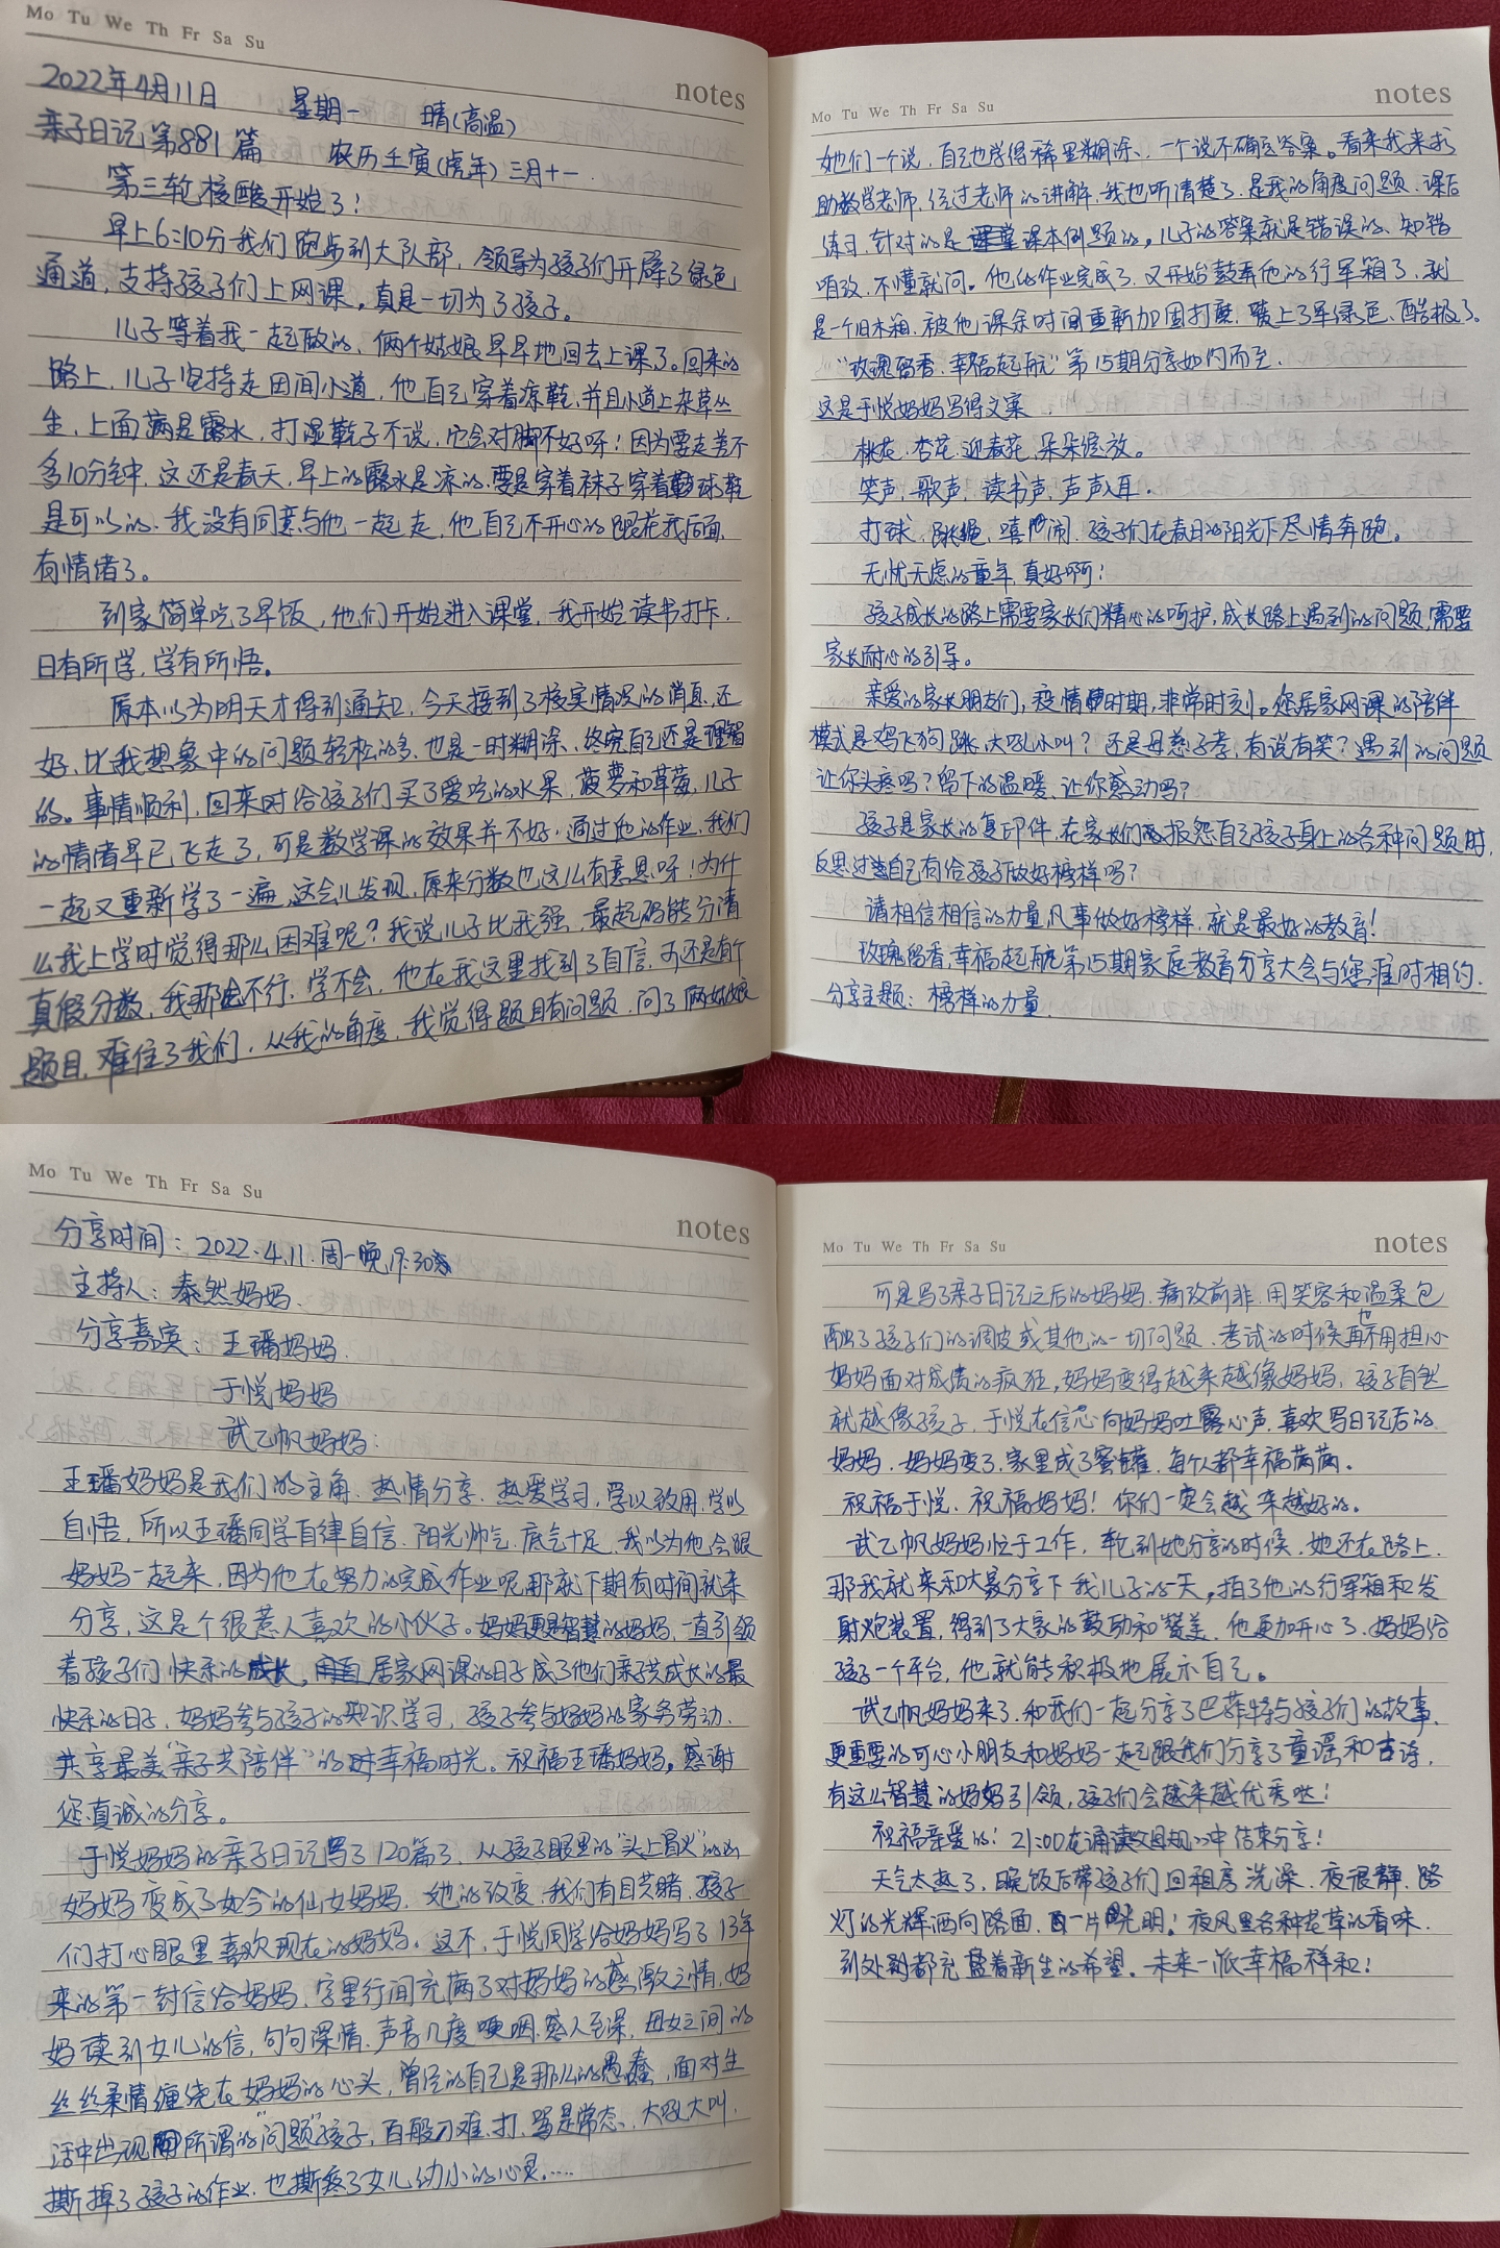 Mo Tu We Th Fr Sa Su
notes
2022年4月11日 星期一 晴(高温)
亲子日记第881篇 农历壬寅(虎年)三月十一.
第三轮核酸开始了!
早上6:10分我们跑步到大队部,领导为孩子们开辟了绿色
通道,支持孩子们上网课,真是一切为了孩子。
儿子等着我一起做的,俩个姑娘早早地回去上课了。回来的
路上,儿子坚持走田间小道,他自己穿着凉鞋,并且小道上杂草丛
生,上面满是露水,打湿鞋子不说,也会对脚不好呀!因为要走差不
多10分钟,这还是春天,早上的露水是凉的,要是穿着袜子穿着球鞋
是可以的.我没有同意与他一起走,他自己不开心的跟在我后面,
有情绪了。
到家简单吃了早饭,他们开始进入课堂,我开始读书打卡,
日有所学,学有所悟。
原本以为明天才得到通知,今天接到了核实情况的消息,还
好,比我想象中的问题轻松的多,也是一时糊涂、终究自己还是理智
的。事情顺利,回来时给孩子们买了爱吃的水果,菠萝和草莓,儿子
的情绪早已飞走了,可是数学课的效果并不好.通过他的作业,我们
一起又重新学了一遍,这会儿发现,原来分数也这么有意思呀!为什
么我上学时觉得那么困难呢?我说儿子比我强,最起码能分清
真假分数,我那也不行,学不会,他在我这里找到了自信,可还是有个
题目,难住了我们,从我的角度,我觉得题目有问题,问了俩姑娘
Mo Tu We Th Fr Sa Su
notes
她们一个说,自己也学得稀里糊涂、一个说不确定答案。看来我来求
助数学老师,经过老师的讲解,我也听清楚了,是我的角度问题,课后
练习,针对的是课本例题的,儿子的答案就是错误的、知错
咱改,不懂就问。他的作业完成了,又开始鼓弄他的行军箱了,就
是一个旧木箱,被他课余时间重新加固打磨,喷上了军绿色、酷极了。
“玫瑰留香,幸福起航”第15期分享如约而至.
这是于悦妈妈写得文案
桃花,杏花,迎春花,朵朵绽放。
笑声,歌声,读书声,声声入耳.
打球,跳绳,嘻闹,孩子们在春日的阳光下尽情奔跑。
无忧无虑的童年,真好啊!
孩子成长的路上需要家长们精心的呵护,成长路上遇到的问题,需要
家长耐心的引导。
亲爱的家长朋友们,疫情时期,非常时刻。您居家网课的陪伴
模式是鸡飞狗跳,大吼小叫?还是母慈子孝,有说有笑?遇到的问题
让你头疼吗?留下的温暖,让你感动吗?
孩子是家长的复印件,在家长们报怨自己孩子身上的各种问题时,
反思过自己有给孩子做好榜样吗?
请相信相信的力量,凡事做好榜样,就是最好的教育!
玫瑰留香,幸福起航第15期家庭教育分享大会与您准时相约.
分享主题:榜样的力量
Mo Tu We Th Fr Sa Su
notes
分享时间:2022.4.11.周一晚19:30
主持人:泰然妈妈.
分享嘉宾:王璠妈妈.
于悦妈妈
武乙帆妈妈:
王璠妈妈是我们的主角,热情分享,热爱学习,学以致用,学以
自悟,所以王璠同学自律自信,阳光帅气,底气十足,我以为他会跟
妈妈一起来,因为他在努力的完成作业呢,那就下期有时间就来
分享,这是个很惹人喜欢的小伙子。妈妈更是智慧的妈妈,一直引领
着孩子们快乐的成长,居家网课的日子成了他们亲子共成长的最
快乐的日子,妈妈参与孩子的知识学习,孩子参与妈妈的家务劳动,
共享最美“亲子共陪伴”的幸福时光。祝福王璠妈妈,感谢
您真诚的分享。
于悦妈妈的亲子日记写了120篇了,从孩子眼里的“头上冒火”的凶
妈妈变成了如今的仙女妈妈,她的改变,我们有目共睹,孩子
们打心眼里喜欢现在的妈妈。这不,于悦同学给妈妈写了13年
来的第一封信给妈妈,字里行间充满了对妈妈的感激之情,妈
妈读到女儿的信,句句深情,声音几度哽咽,感人至深,母女之间的
丝丝柔情缠绕在妈妈的心头,曾经的自己是那么的愚蠢,面对生
活中出现所谓的“问题”孩子,百般刁难,打,骂是常态,大吼大叫,
撕掉了孩子的作业,也撕疼了女儿幼小的心灵.....
Mo Tu We Th Fr Sa Su
notes
可是写了亲子日记之后的妈妈,痛改前非,用笑容和温柔包
融了孩子们的调皮或其他的一切问题,考试的时候再也不用担心
妈妈面对成绩的疯狂,妈妈变得越来越像妈妈,孩子自然
就越像孩子,于悦在信中向妈妈吐露心声,喜欢写日记后的
妈妈,妈妈变了,家里成了蜜罐,每个人都幸福满满。
祝福于悦,祝福妈妈!你们一定会越来越好的。
武乙帆妈妈忙于工作,轮到她分享的时候,她还在路上.
那我就来和大家分享下我儿子的一天,拍了他的行军箱和发
射炮装置,得到了大家的鼓励和赞美,他更加开心了,妈妈给
孩子一个平台,他就能积极地展示自己。
武乙帆妈妈来了,和我们一起分享了巴菲特与孩子们的故事,
更重要的可心小朋友和妈妈一起跟我们分享了童谣和古诗,
有这么智慧的妈妈引领,孩子们会越来越优秀哒!
祝福亲爱的!21:00在诵读《母规》中结束分享!
天气太热了,晚饭后带孩子们回租房洗澡,夜很静,路
灯的光辉洒向路面,一片光明!夜风里各种花草的香味,
到处都充盈着新生的希望,未来一派幸福祥和!